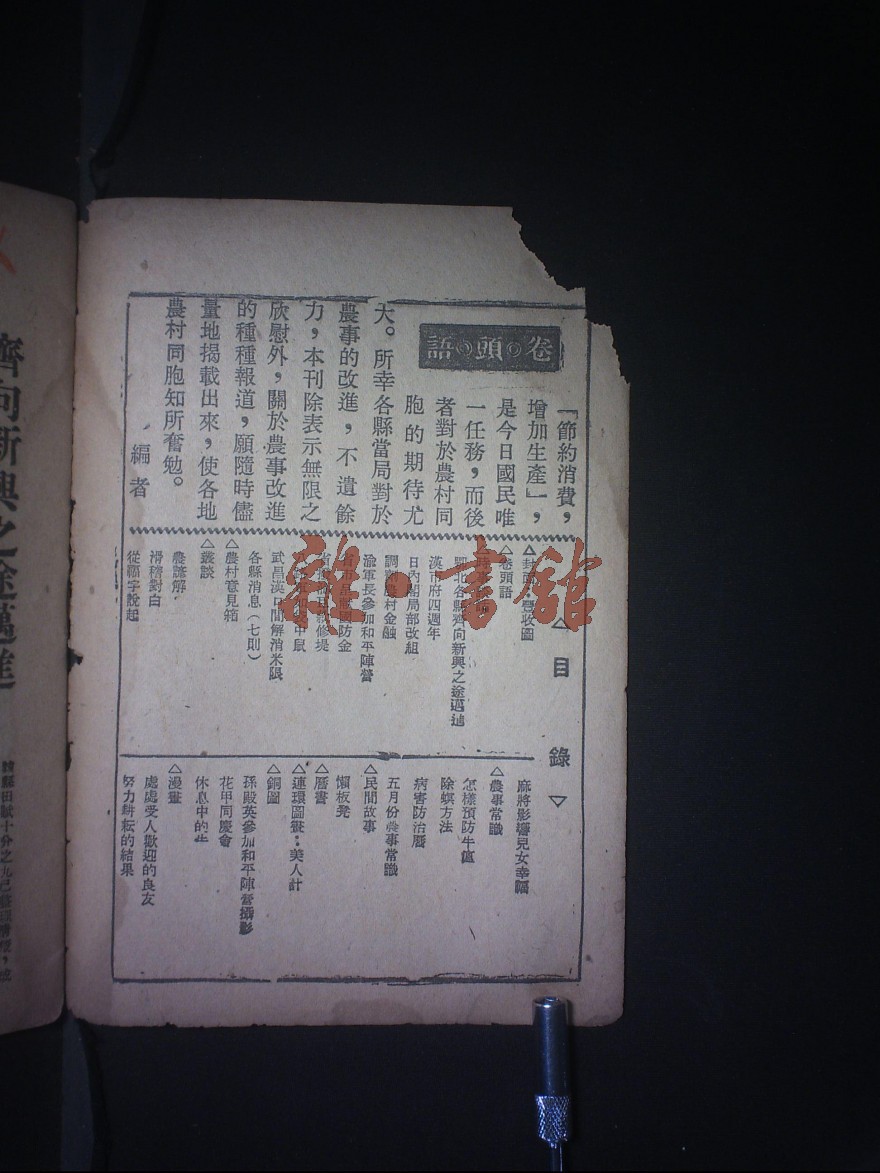 卷頭語
「節約消費，
增加生產」，
是今日國民唯
一任務，而後
者對於農村同
胞的期待尤
大。所幸各縣當局對於
農事的改進，不遺餘
力，本刊除表示無限之
欣慰外，關於農事改進
的種種報道，願隨時儘
量地揭載出來，使各地
農村同胞知所奮勉。
編者
△目錄▽
△卷頭語
北各縣齊向新興之途邁進
漢市府四週年
日內閣局部改組
調 農村金融
渝軍長參加和平陣營
防金
修堤
中鼠
武昌漢口間解消米限
各縣消息（七則）
△農村意見箱
△叢談
農諺解
滑稽對白
從 字說起
麻將影響兒女幸福
△農事常識
怎樣預防牛瘟
除螟方法
病害防治曆
五月份農事常識
△民間故事
懶板凳
△曆書
△連環圖畫：美人計
△銅圖
孫殿英參加和平陣營攝影
花甲同慶會
休息中的牛
△漫畫
處處受人歡迎的良友
努力耕耘的結果
雜書館
齊向新興之途邁進
縣田賦十分之九已